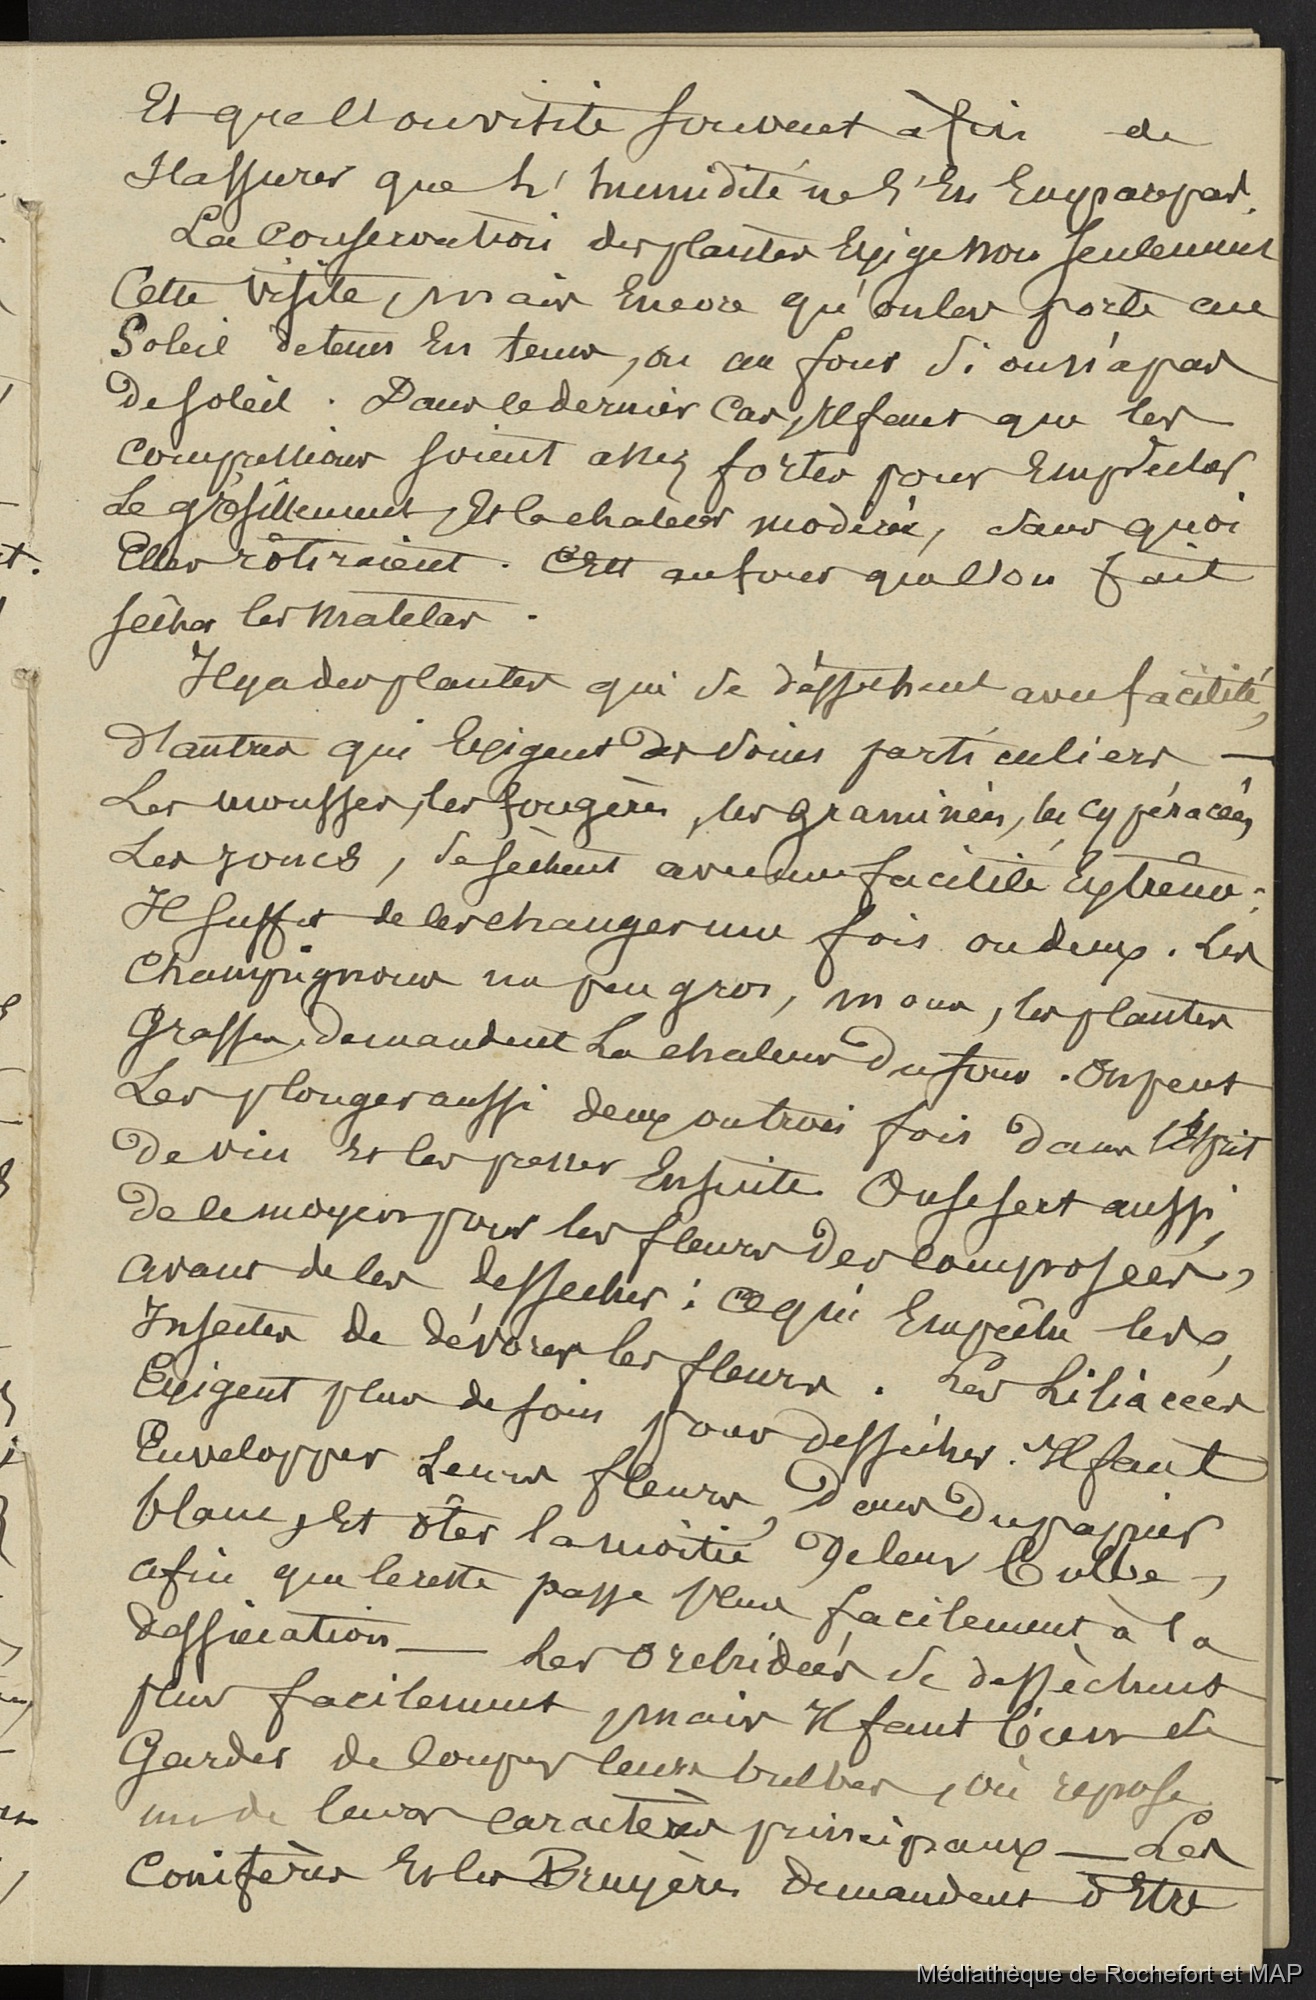 Et que l'on visite souvent afin de
s'assurer que l'humidité ne s'en empare pas.
La conservation des plantes exige non seulement
Cette visite, mais encore qu'on les porte au
Soleil de tems en tems, ou au four si on n'a pas
De soleil. Dans le dernier Cas, Il faut que les
compressions soient assez fortes pour empêcher
Le grésillement, Et la chaleur modérée, sans quoi
Elles rôtiraient. C'Est au four que l'on fait
sécher les matelas.
Il y a des plantes qui se déssèchent avec facilité,
d'autres qui Exigent des soins particuliers —
Les mousses, les fougères, les graminées, les cypéracées,
Les joncs, se sèchent avec une facilité Extrême;
Il suffit de les changer une fois ou deux. Les
Champignons un peu gros, mous, les plantes
Grasses, Demandent La chaleur Du four. On peut
Les plonger aussi deux ou trois fois Dans l'Esprit
De vin Et les presser Ensuite. On se sert aussi,
De ce moyen pour les fleurs Des composées,
avant de les dessécher; ce qui Empêche les
Insectes de dévorer les fleurs. Les Liliacées
Exigent plus de soin pour dessécher. Il faut
Envelopper Leurs fleurs, Dans Du papier
blanc, Et ôter la moitié De leur bulbe,
afin que le reste passe plus facilement à la
dessication — Les Orchidées se dessèchent
plus facilement, mais Il faut bien se
Garder de couper leurs bulbes, où repose
un de leurs caractères principaux — Les
Conifères Et les Bruyères demandent d'Etre
Médiathèque de Rochefort et MAP